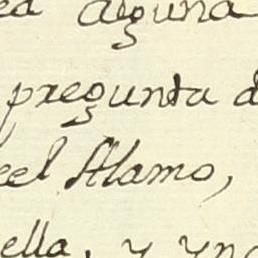 ea alguna
pregunta d
eel Alamo,
ella, y yno